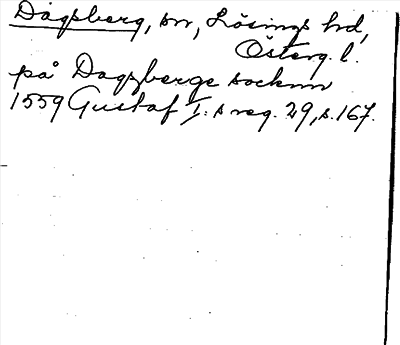 Dagsberg, sn, Lösings hd,
Österg. l.
på Dagzberge socknn
1559 Gustaf I:s reg. 29, s. 167.